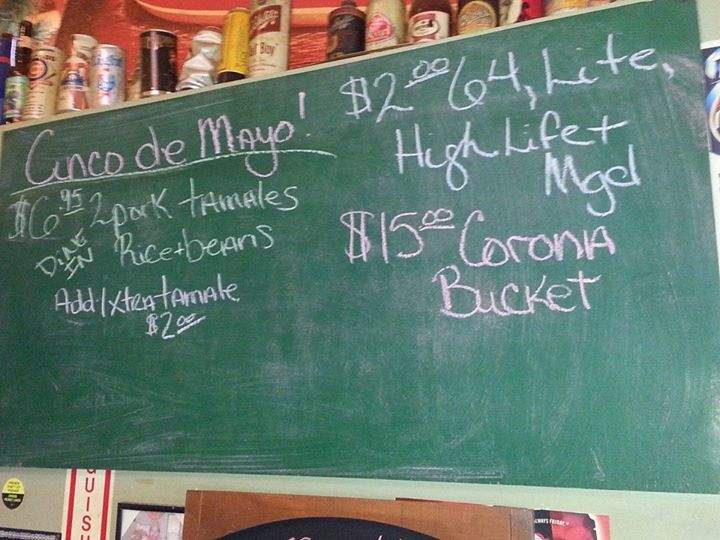 Cinco de Mayo!
$6.95 2 pork tamales
DINE IN
Rice + beans
Add 1 Xtra tamale
$2.00
$2.00 64, Lite,
High Life +
Mgd
$15.00 Corona
Bucket
UISH